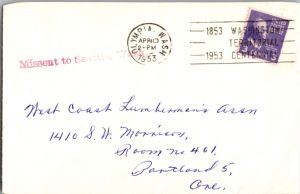 OLYMPIA, WASH
APR 13
2-PM
1953
1853 WASHINGTON
TERRITORIAL
1953 CENTENNIAL
Missent to Seattle, W
West Coast Lumberman's Assn
1410 S.W. Morrison,
Room No 461,
Portland 5,
Ore.